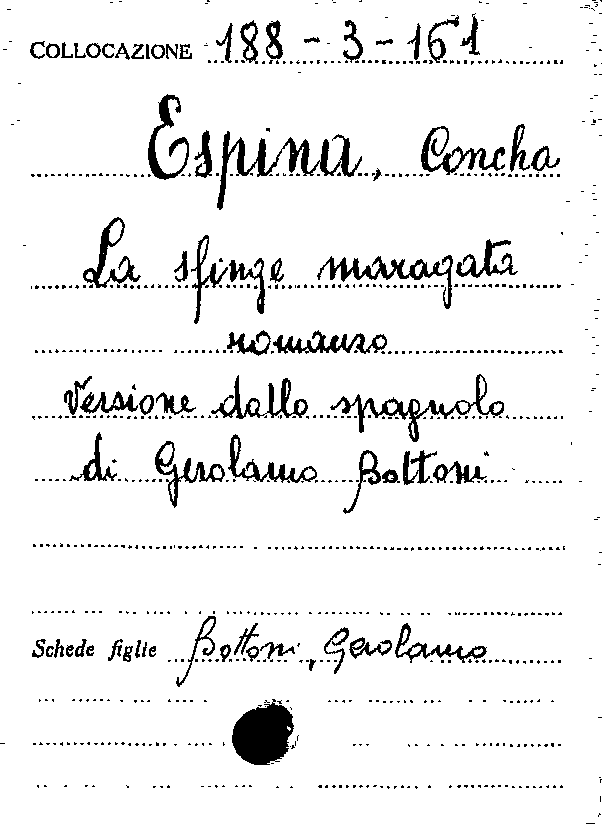 COLLOCAZIONE 188-3-161
Espina, Concha
La sfinge maragata
romanzo
Versione dallo spagnolo
di Gerolamo Bottoni
Schede figlie Bottoni, Gerolamo